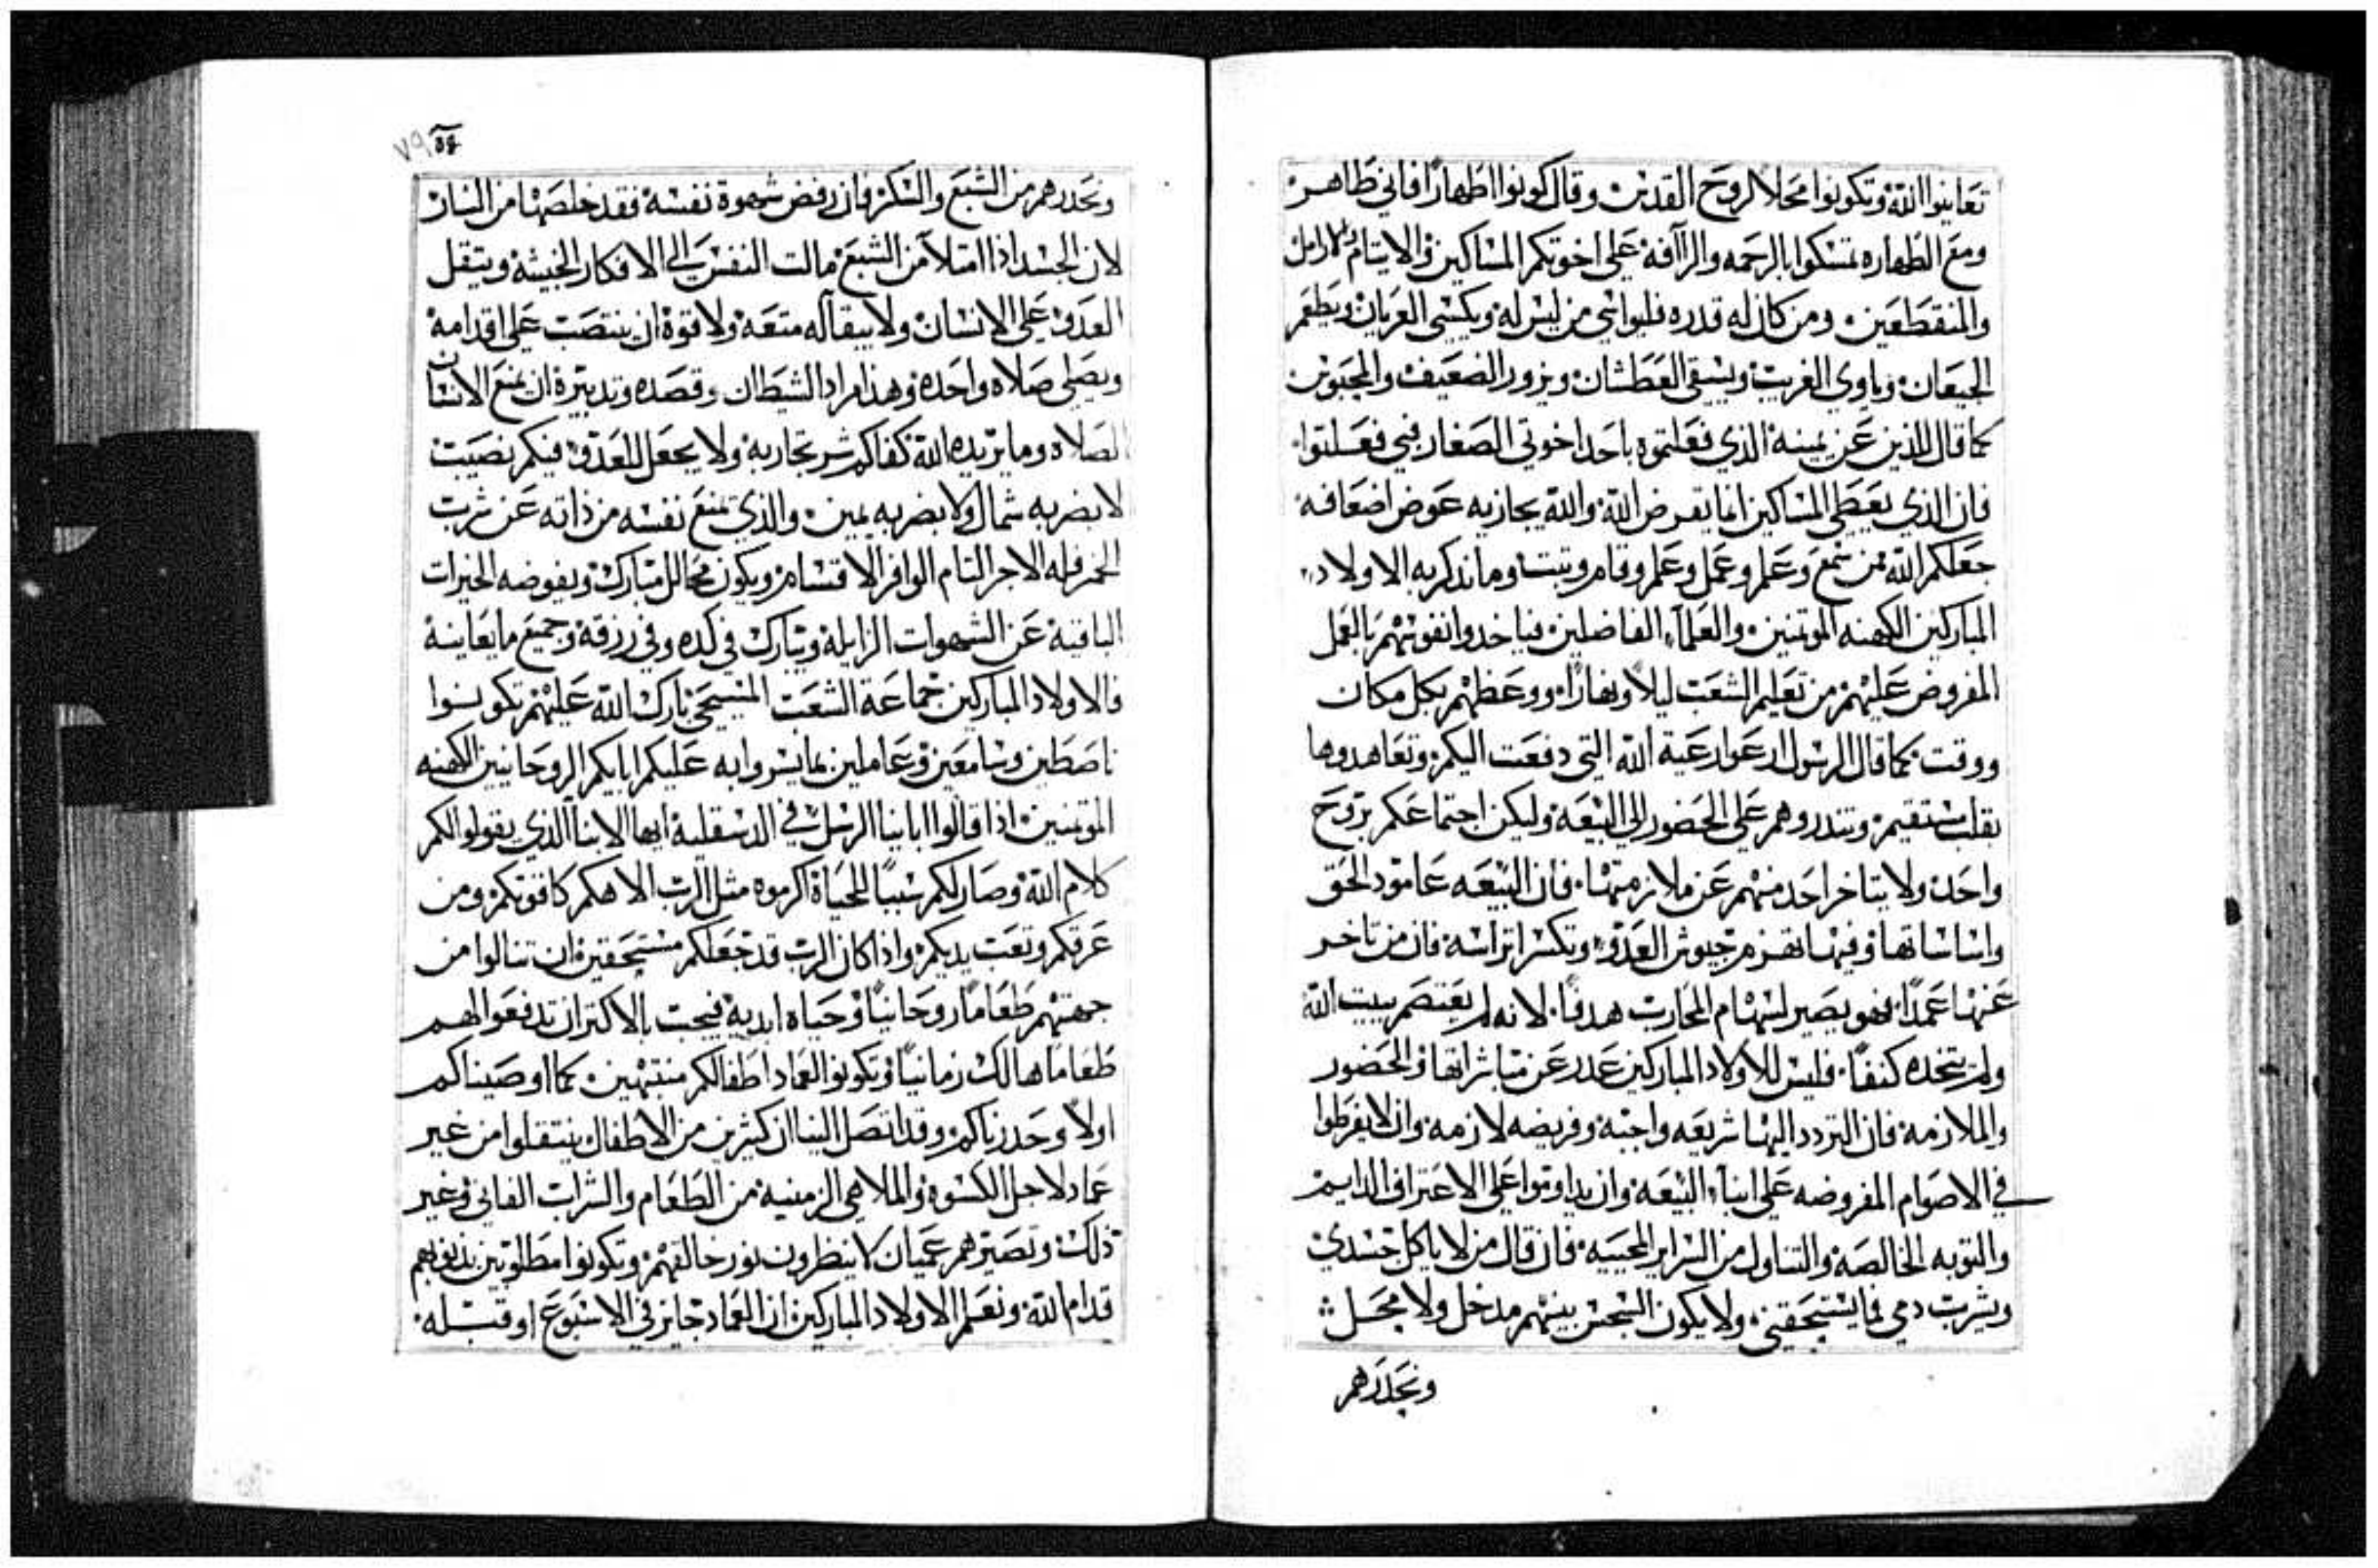 تعاينوا الله وتكونوا محلا لروح القدس وقال كونوا اطهارًا فاني طاهر
ومع الطهاره تمسكوا بالرحمه والرآفة على اخوتكم المساكين والايتام والارامل
والمنقطعين ومن كان له قدره فليواسي من ليس له ويكسي العريان ويطعم
الجيعان وياوي الغريب ويسقي العطشان ويزور الضعيف والمحبوس
كما قال للذين عن يمينه الذي فعلتموه باحد اخوتي الصغار فبي فعلتوا
فان الذي يعطي المساكين انما يقرض الله والله يجازيه عوض اضعافه
جعلكم الله ممن سمع وعلم وعمل وعلم وقام وثبت وما نذكر به الاولاد
المباركين الكهنه الموتمنين والعلمآء الفاضلين فياخدوا نفوسهم بالعمل
المفروض عليهم من تعليم الشعب ليلاً ونهارًا ووعظهم بكل مكان
ووقت كما قال الرسول ارعوا رعية الله التي دفعت اليكم وتعاهدوها
بقلب مستقيم وتندروهم على الحضور الي البيعة وليكن اجتماعكم بروح
واحد ولا يتاخر احد منهم عن ملازمتها فان البيعه عامود الحق
واساساتها وفيها تهزم جيوش العدو وتكسر اتراسه فان من تاخر
عنها عمدًا فهو يصير لسهام المحارب هدفًا لانه لم يعتصم ببيت الله
ولم يتخده كنفًا فليس للاولاد المباركين عدر عن مباشراتها والحضور
والملازمة فان التردد اليها شريعه واجبة وفريضه لازمة وان لا يفرطوا
في الاصوام المفروضه على ابنآء البيعة وان يداوموا على الاعتراف الدايم
والتوبه الخالصة والتناول من السراير المحييه فان قال من لا ياكل جسدي
ويشرب دمي فما يستحقني ولا يكون السجس بينهم مدخل ولا محل
ونحدرهم
٧٩
ونحدرهم من الشبع والسكر فان رفض شهوة نفسه فقد خلصها من النار
لان الجسد اذا امتلآ من الشبع مالت النفس الى الافكار الخبيثة ويتقل
العدو على الانسان ولا يبقا له متعة ولا قوة ان ينتصب على اقدامه
ويصلي صلاه واحدة وهذا مراد الشيطان وقصده وتدبيرة ان يمنع الانسان
الصلاه وما يريده الله كفاكم شر تجاربه ولا يجعل للعدو فيكم نصيب
لا بضربه شمال ولا بضربه يمين والذي يمنع نفسه من ذاته عن شرب
الخمر فله الاجر التام الوافر الاقسام ويكون محالل مبارك ويفوضه الخيرات
الباقية عن الشهوات الزايلة ويبارك في كده وفي رزقه وجميع ما يعاينة
فالاولاد المباركين جماعة الشعب المسيحي بارك الله عليهم تكونوا
ناصطين وسامعين وعاملين بما يشيروا به عليكم ابايكم الروحانيين الكهنه
الموتمنين اذا قالوا اباينا الرسل في الدسقلية ايها الابنا الذي يقولوا لكم
كلام الله وصار لكم سببًا للحياة اكرموه مثل الرب الاهكم كافوتكم ومن
عرقكم وتعب يديكم واذا كان الرب قد جعلكم مستحقين ان تنالوا من
جهتهم طعامًا روحانيًا وحياه ابدية فيجب بالاكتر ان تدفعوا لهم
طعامًا هالك زمانيًا وتكونوا لعماد اطفالكم منتبهين كما اوصيناكم
اولاً وحدرناكم وقد اتصل الينا ان كثيرين من الاطفال ينتقلوا من غير
عماد لاجل الكسوة والملاهي الزمنية من الطعام والشراب الفاني وغير
ذلك وتصيروهم عميان لا ينظرون نور خالقهم وتكونوا مطلوبين بذنوبهم
قدام الله ونعلم الاولاد المباركين ان العماد جايز في الاسبوع او قبله